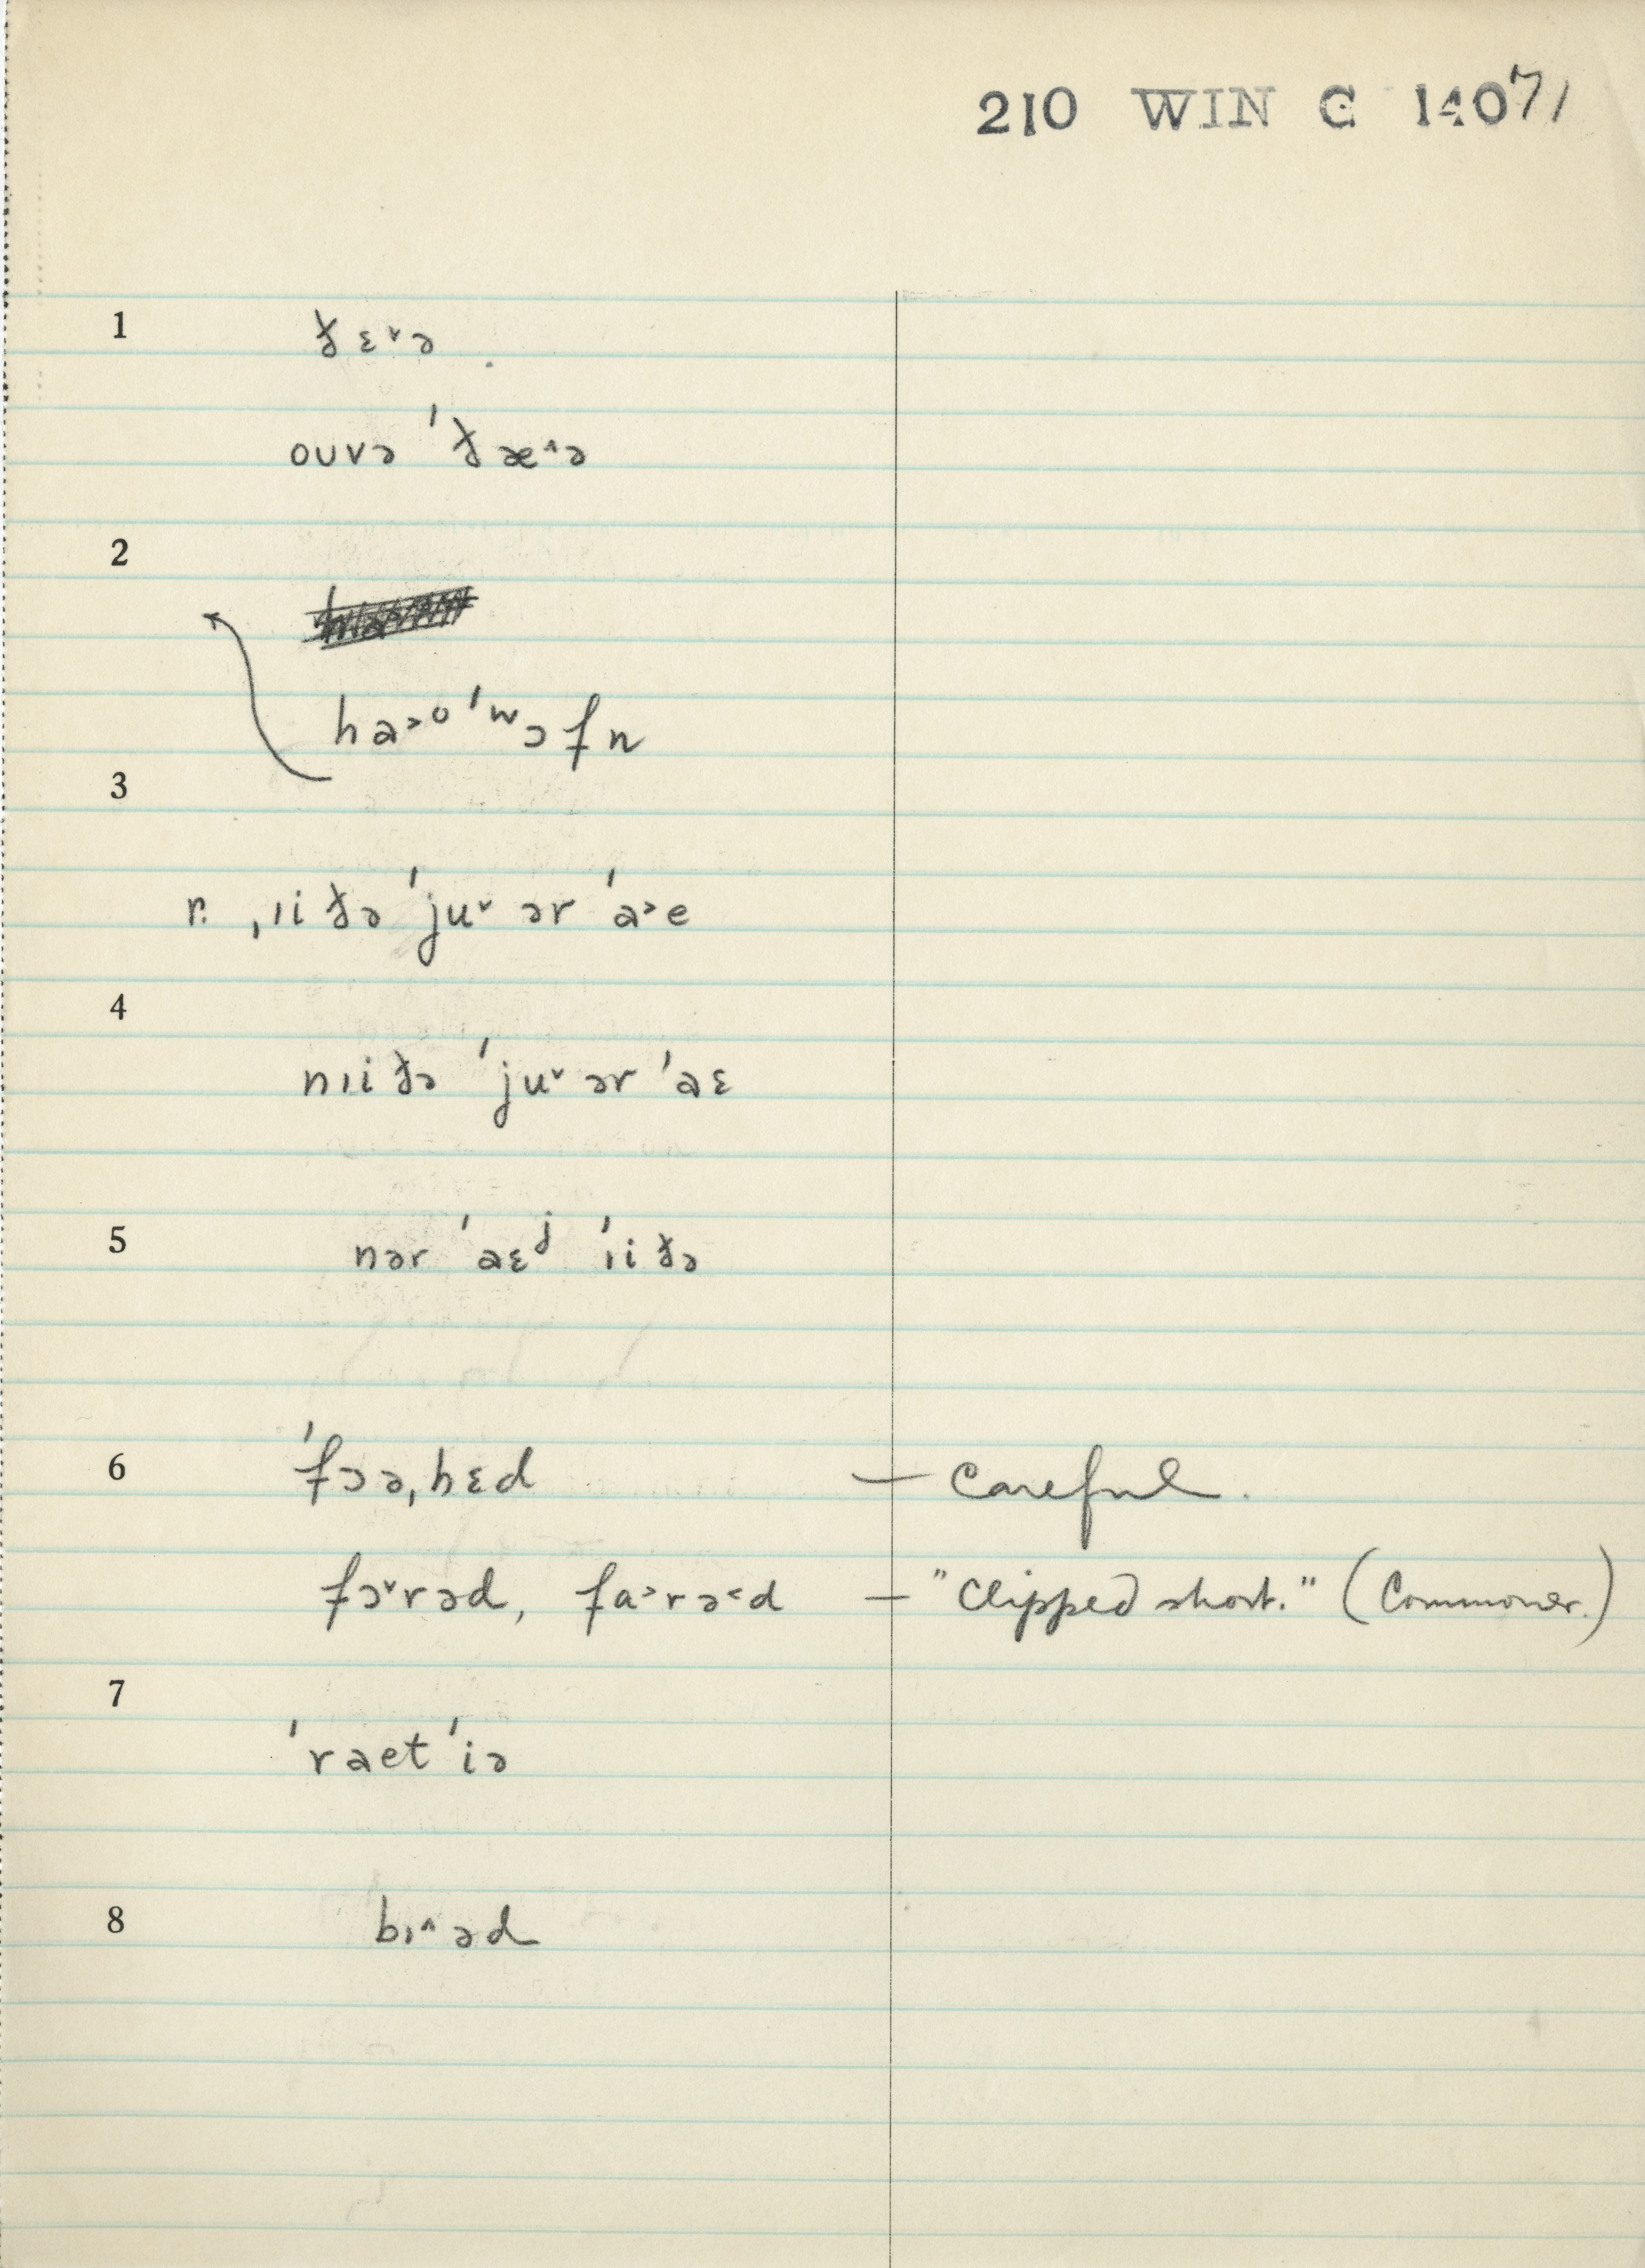 210 WIN C 14071
1 ðɛ˅ə
ouvə ˈðæ˄ə
2
ha˃ᴼ ˈʷɔfn
3
r. ˌɪiðə ˈju˅ ər ˈa˃e
4
nɪiðə ˈju˅ ər ˈaɛ
5 nər ˈaɛʲ ˈɪiðə
6 ˈfɔəˌhɛd — Careful.
fɔ˅rəd, fɑ˃rə˂d — "Clipped short." (Commoner.)
7
ˈraet ˈiə
8 bɪ˄əd